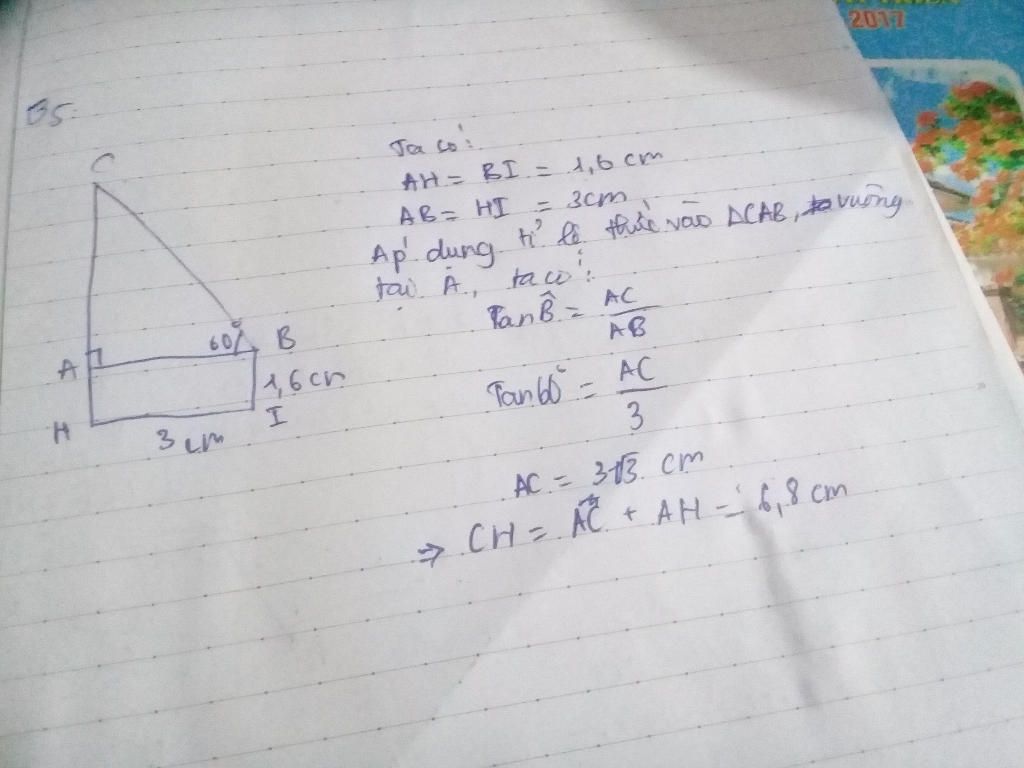 2017
B5:
C
A
60°
B
1,6 cm
H
3 cm
I
Ta có:
AH = BI = 1,6 cm
AB = HI = 3cm
Áp dụng tỉ lệ thức vào ΔCAB, vuông
tại A, ta có:
Tan B̂ = AC/AB
Tan 60° = AC/3
AC = 3√3 cm
⇒ CH = AC + AH = 6,8 cm